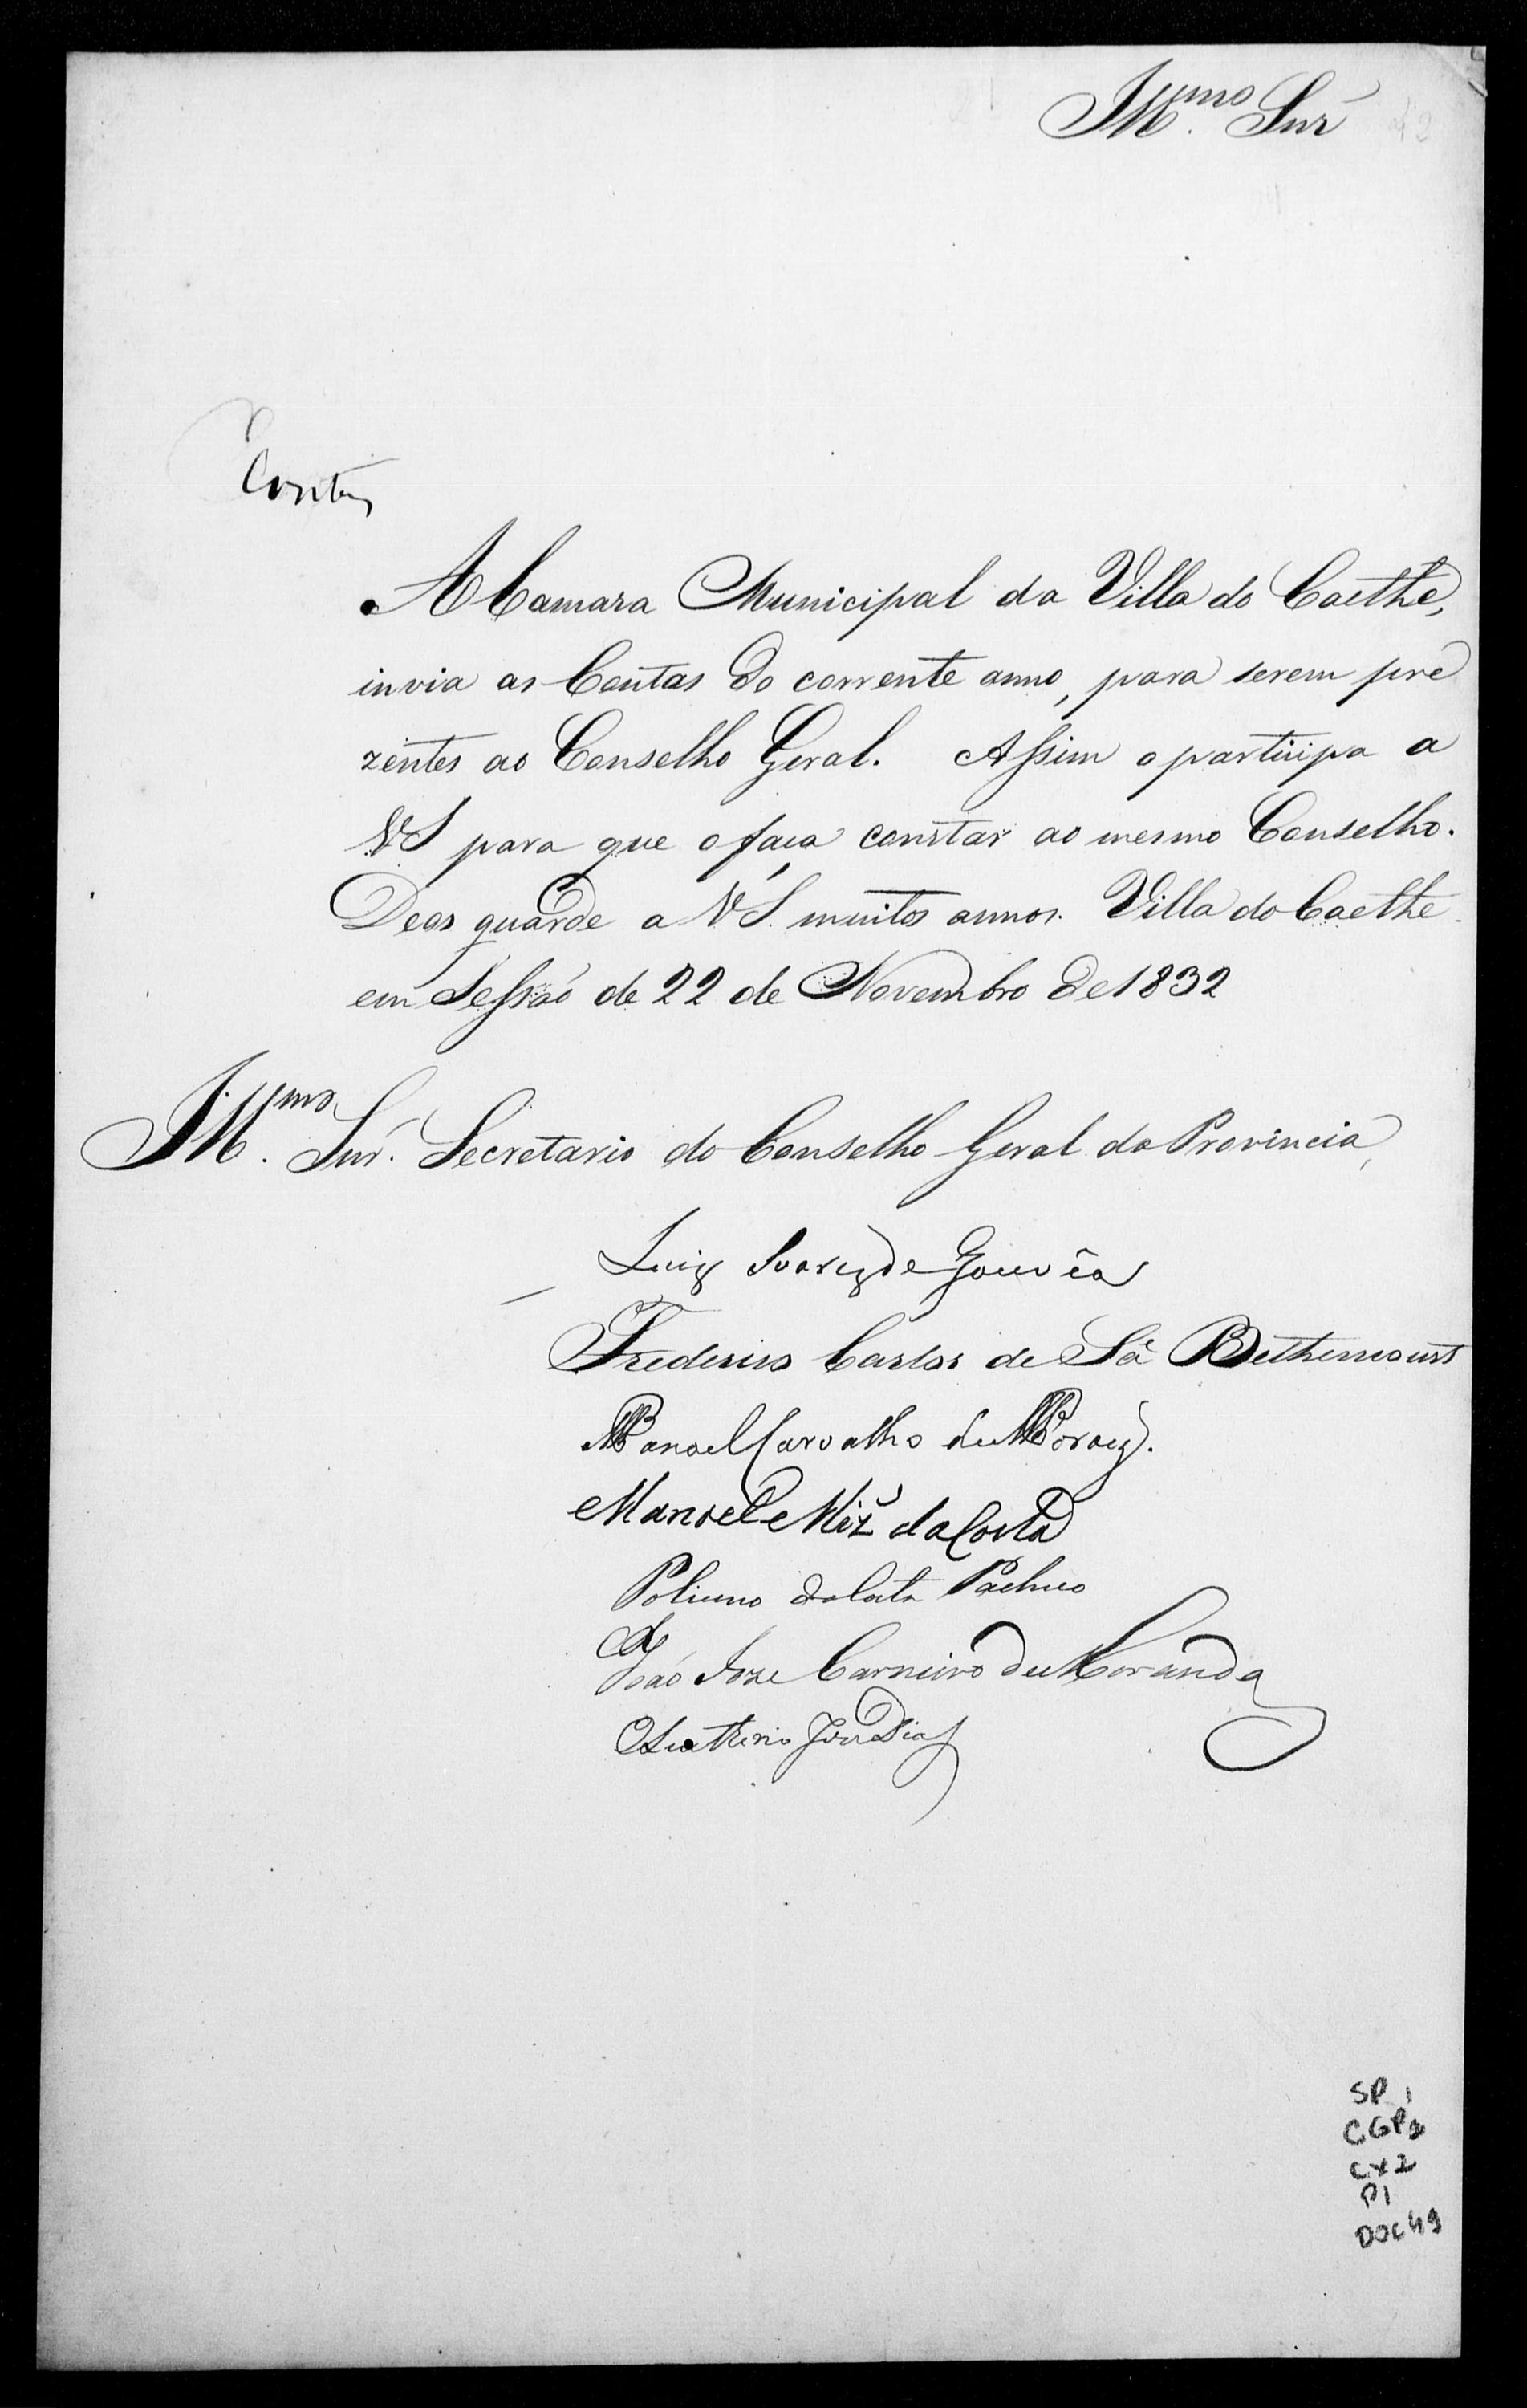 Ill.mo Snr
Contas
A Camara Municipal da Villa do Caethe,
invia as Contas do corrente anno, para serem pre
zentes ao Conselho Geral. Assim o participa a
VS para que o faça constar ao mesmo Conselho.
Deos guarde a VS. muitos annos. Villa do Caethe
em Sessaõ de 22 de Novembro de 1832
Ill.mo Snr. Secretario do Conselho Geral da Provincia,
Luiz Soarez de Gouvêa
Frederico Carlos de Sá Bethencourt
Manoel Carvalho de Moraez.
Manoel Miz da Costa
da Costa Pacheco
João Joze Carneiro de Miranda
Jose Dias
SP 1
CGP2
CX2
P1
DOC 49